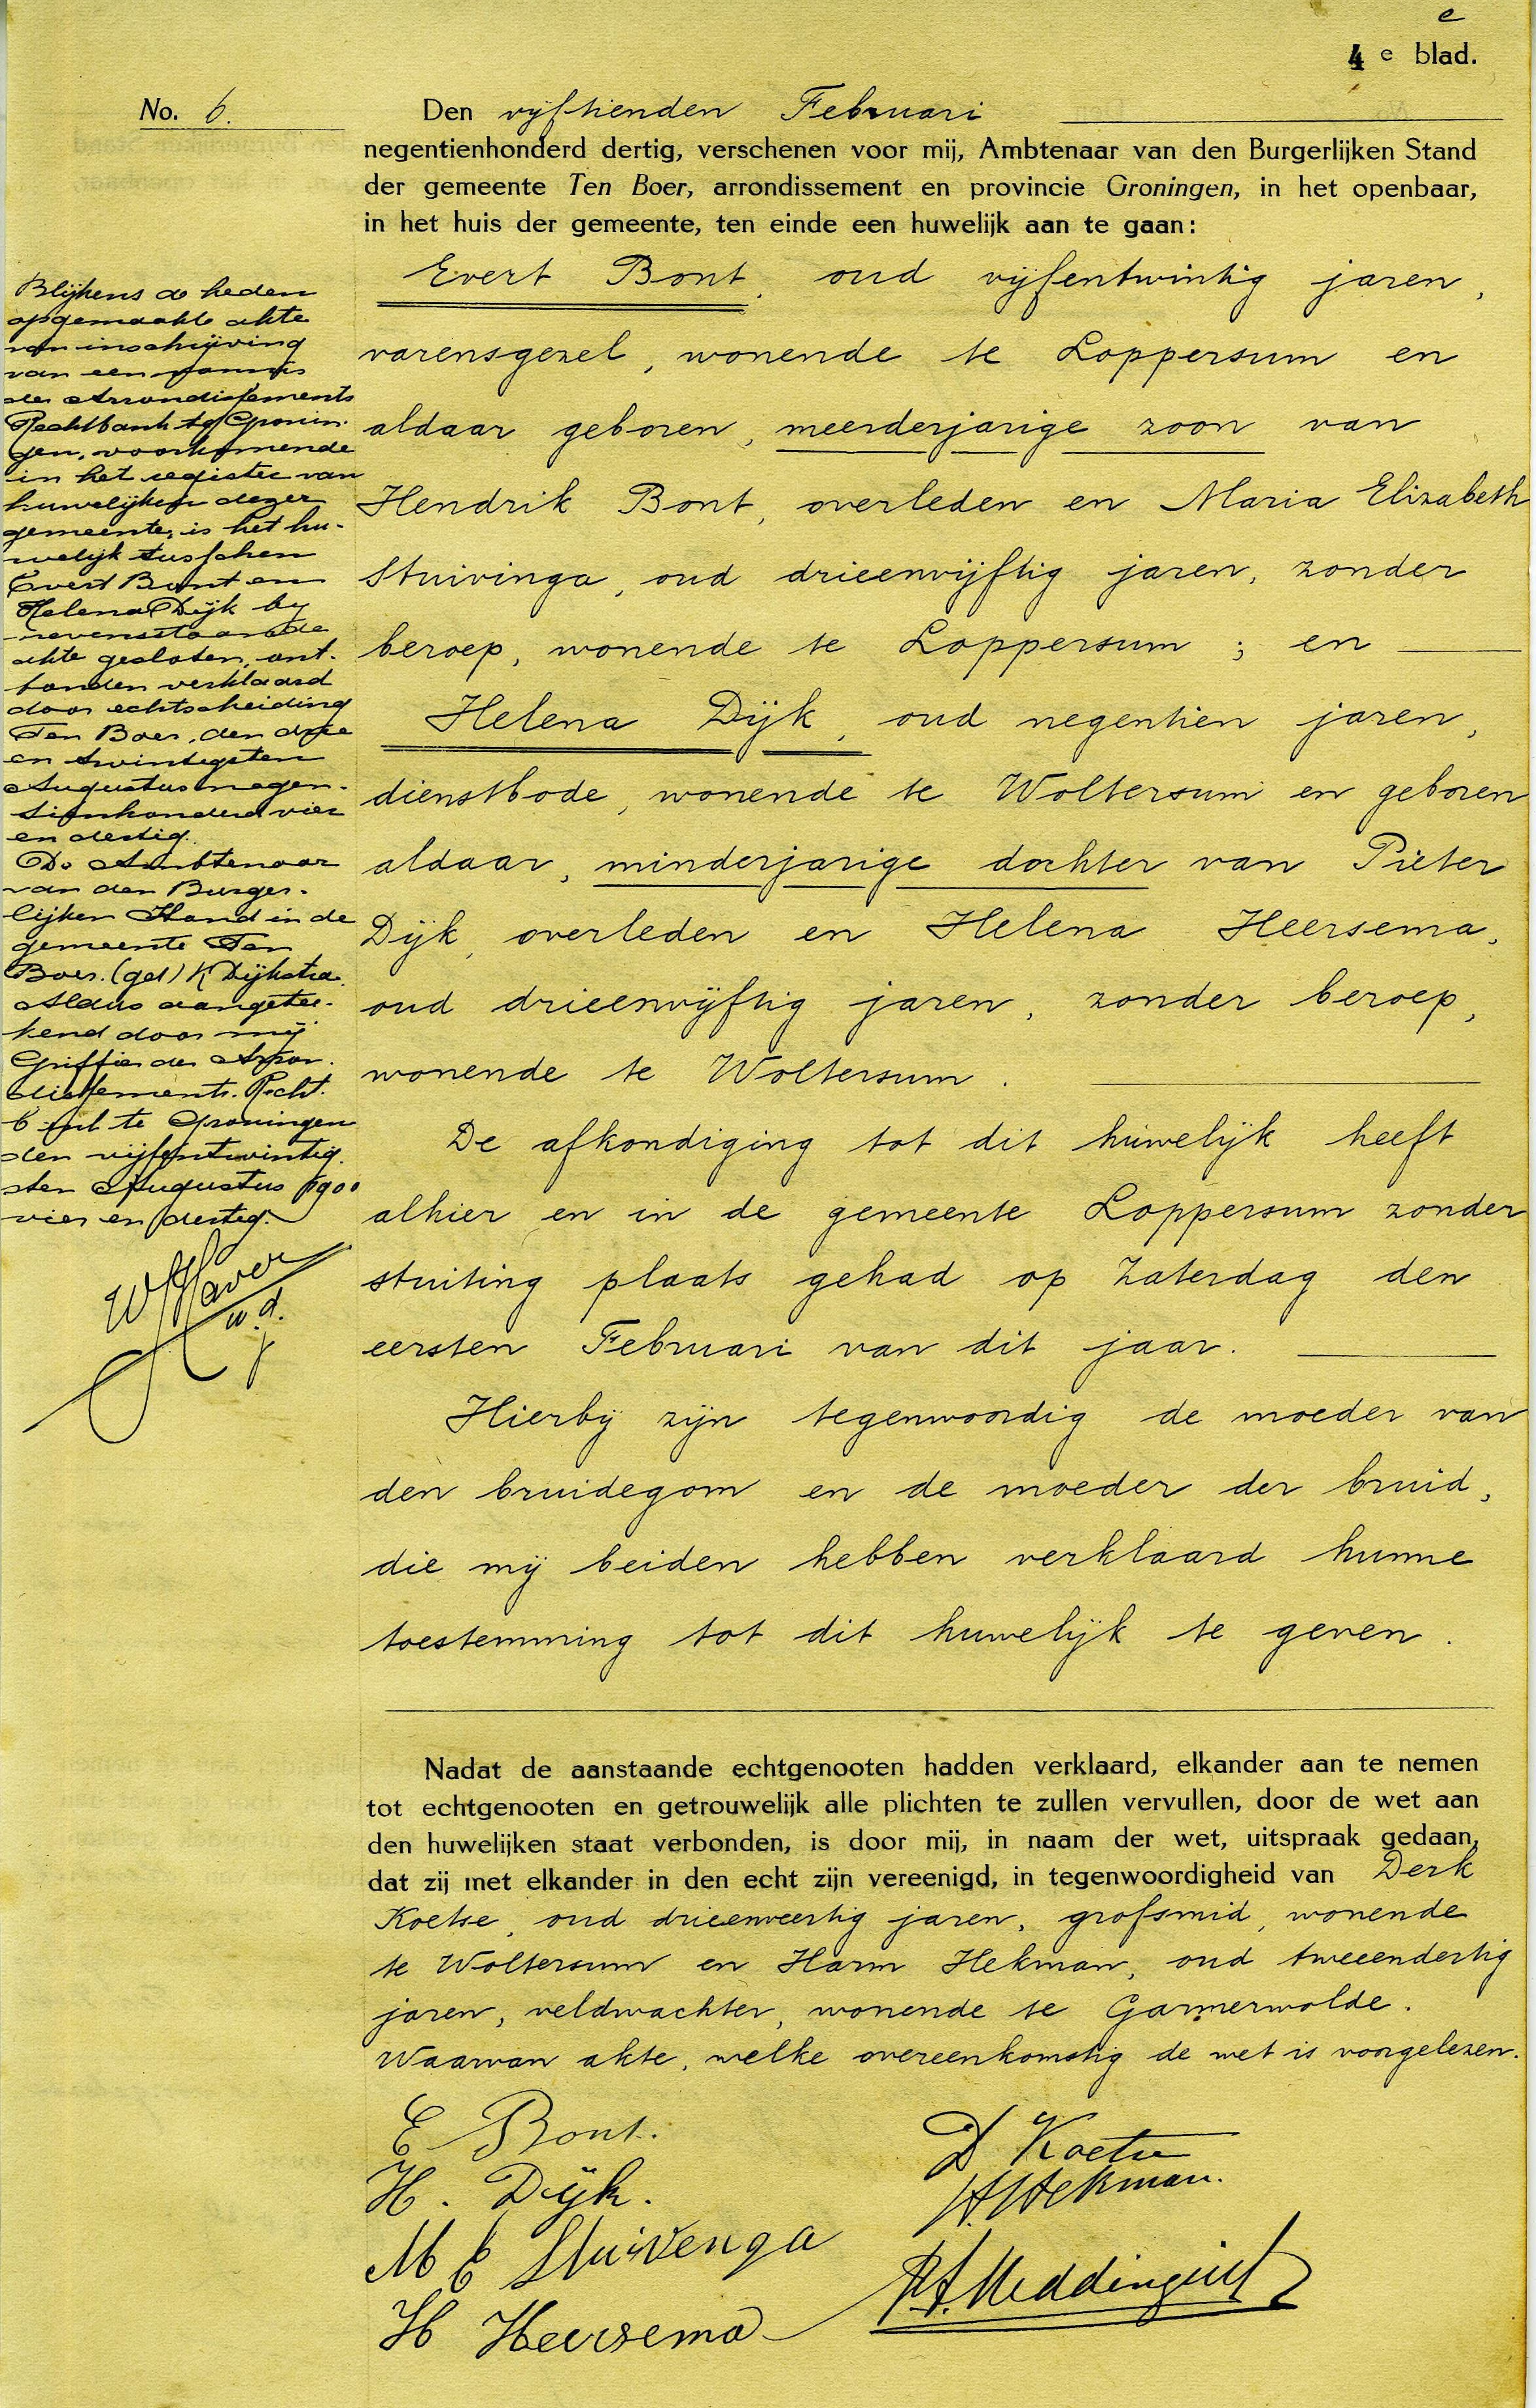 e
4 e blad.
No. 6.
Den vijftienden Februari
negentienhonderd dertig, verschenen voor mij, Ambtenaar van den Burgerlijken Stand
der gemeente Ten Boer, arrondissement en provincie Groningen, in het openbaar,
in het huis der gemeente, ten einde een huwelijk aan te gaan:
Evert Bont, oud vijfentwintig jaren,
varensgezel, wonende te Loppersum en
aldaar geboren, meerderjarige zoon van
Hendrik Bont, overleden en Maria Elizabeth
Stuivinga, oud drieenvijftig jaren, zonder
beroep, wonende te Loppersum ; en
Helena Dijk, oud negentien jaren,
dienstbode, wonende te Woltersum en geboren
aldaar, minderjarige dochter van Pieter
Dijk, overleden en Helena Heersema,
oud drieenvijftig jaren, zonder beroep,
wonende te Woltersum.
De afkondiging tot dit huwelijk heeft
alhier en in de gemeente Loppersum zonder
stuiting plaats gehad op Zaterdag den
eersten Februari van dit jaar.
Hierbij zijn tegenwoordig de moeder van
den bruidegom en de moeder der bruid,
die mij beiden hebben verklaard hunne
toestemming tot dit huwelijk te geven.
Blijkens de heden
opgemaakte akte
van inschrijving
van een vonnis
der Arrondissements
Rechtbank te Gronin-
gen, voorkomende
in het register van
huwelijken dezer
gemeente, is het hu-
welijk tusschen
Evert Bont en
Helena Dijk bij
nevenstaande
akte gesloten, ont-
bonden verklaard
door echtscheiding
Ten Boer, den drie
en twintigsten
Augustus negen-
tienhonderd vier
en dertig.
De Ambtenaar
van den Burger-
lijken Stand in de
gemeente Ten
Boer. (get) K Dijkstra.
Aldus aangetee-
kend door mij
Griffier der Arron-
dissements-Recht-
bank te Groningen
den vijfentwintig-
sten Augustus 1900
vier en dertig.
w.d.
Nadat de aanstaande echtgenooten hadden verklaard, elkander aan te nemen
tot echtgenooten en getrouwelijk alle plichten te zullen vervullen, door de wet aan
den huwelijken staat verbonden, is door mij, in naam der wet, uitspraak gedaan,
dat zij met elkander in den echt zijn vereenigd, in tegenwoordigheid van Derk
Koetse, oud drieenveertig jaren, grofsmid, wonende
te Woltersum en Harm Hekman, oud tweeendertig
jaren, veldwachter, wonende te Garmerwolde.
Waarvan akte, welke overeenkomstig de wet is voorgelezen.
E Bont.
H. Dijk.
M E Stuivenga
H Heersema
D Koetse
H Hekman.